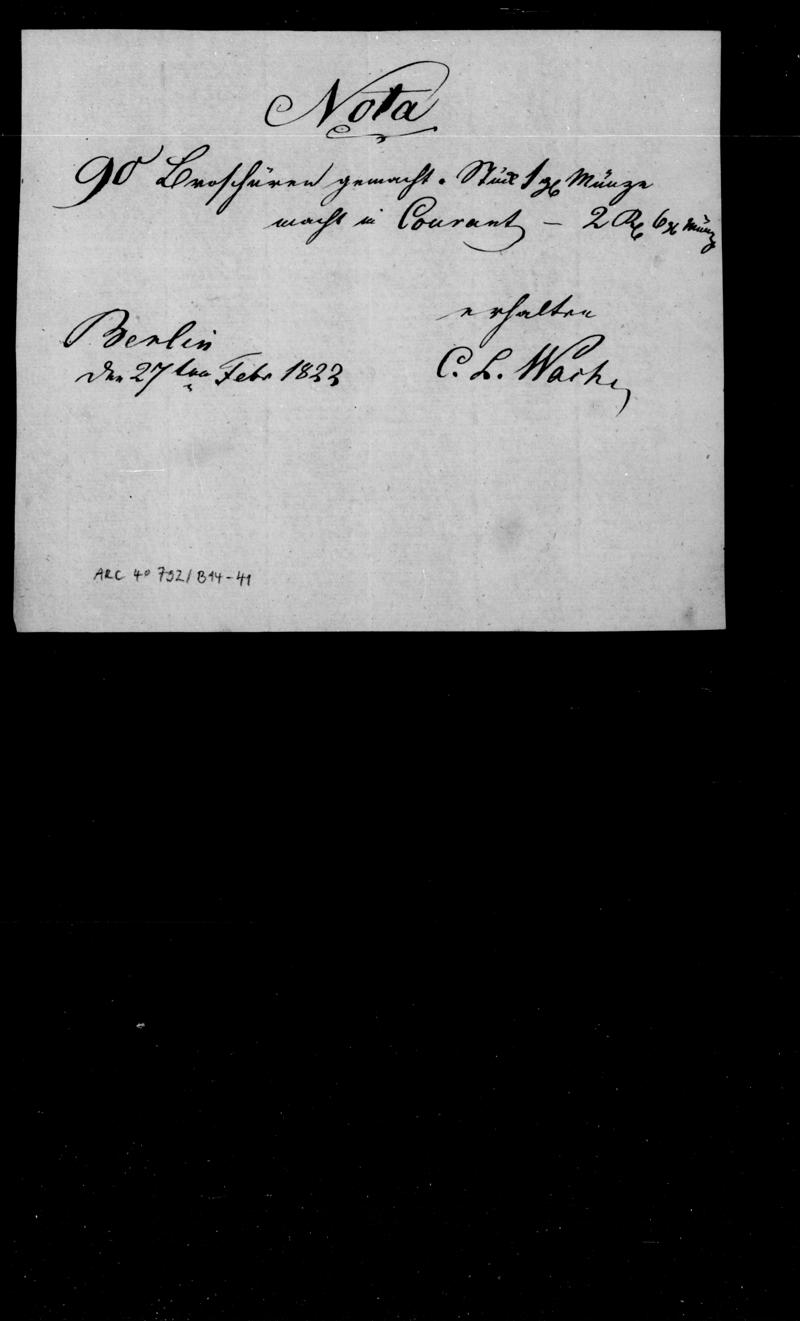 Nota
90 Broschüren gemacht a Stück 1 gr Münze
macht in Courant – 2 Rt 6 gr Münz
erhalten
Berlin
den 27ten Febr 1822
C. L. Wache
ARC 4° 792/B14-41